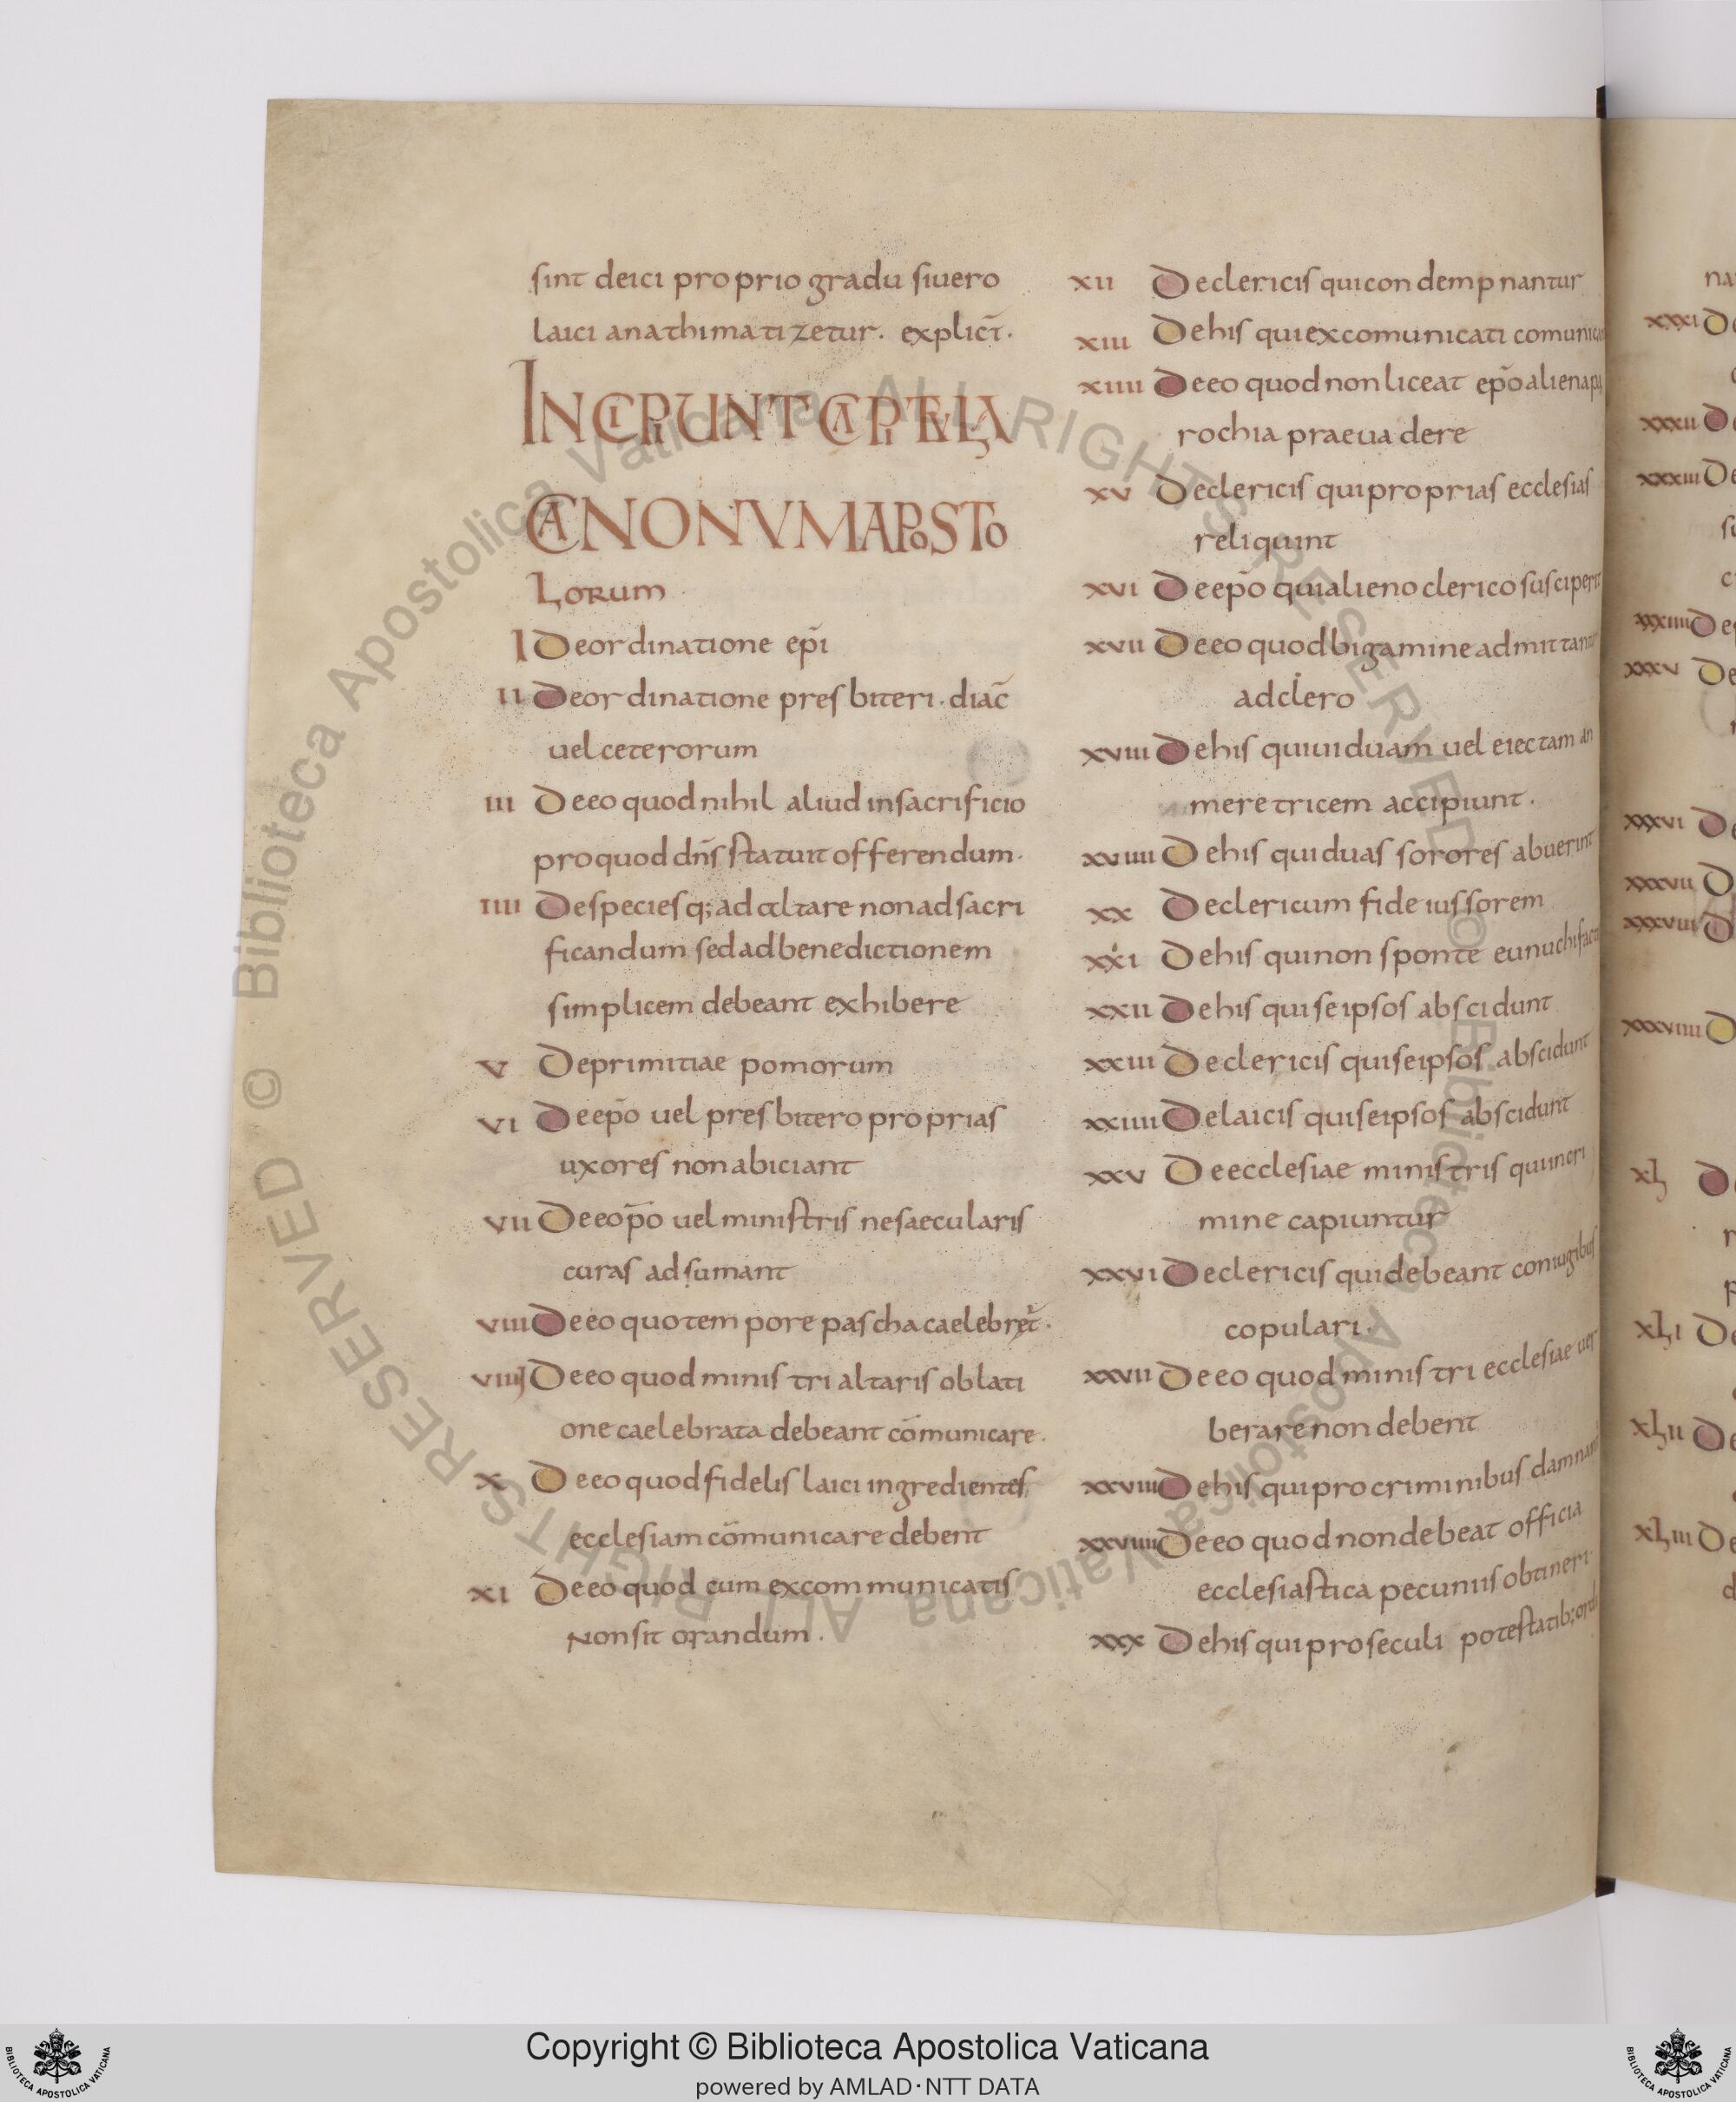 sint deici proprio gradu siuero
laici anathimatizetur. explict̄.
INCIPIUNT CAPITULA
CANONVM APOSTO
LORUM
I Deordinatione ep̄i
II Deordinatione presbiteri. diac̄
uel ceterorum
III Deeo quod nihil aliud insacrificio
proquod dn̄s statuit offerendum.
IIII Despecies q; ad altare non adsacri
ficandum sed adbenedictionem
simplicem debeant exhibere
V Deprimitiae pomorum
VI Deep̄o uel presbitero proprias
uxores non abiciant
VII Deeop̄o uel ministris nesaecularis
curas adsumant
VIII Deeo quotempore pascha caelebret̄.
VIIII Deeo quod ministri altaris oblati
one caelebrata debeant com̄unicare.
X Deeo quod fidelis laici ingredientes
ecclesiam com̄unicare debent
XI Deeo quod cum excommunicatis
Non sit orandum.
XII Declericis qui condempnantur
XIII Dehis qui excomunicati
XIIII Deeo quod non liceat ep̄o aliena
rochia praeuadere
XV Declericis qui proprias ecclesias
reliquint
XVI Deep̄o qui alieno clerico susciperit
XVII Deeo quod bigami ne admittantur
adclero
XVIII Dehis qui uiduam uel eiectam
meretricem accipiunt.
XVIIII Dehis qui duas sorores abuerint
XX Declericum fideiussorem
XXI Dehis qui non sponte eunuchi
XXII Dehis qui seipsos abscidunt
XXIII Declericis qui seipsos abscidunt
XXIIII Delaicis qui seipsos abscidunt
XXV Deecclesiae ministris qui incri
mine capiuntur
XXVI Declericis qui debeant coniugibus
copulari.
XXVII Deeo quod ministri ecclesiae uer
berare non debent
XXVIII Dehis qui pro criminibus
XXVIIII Deeo quod non debeat officia
ecclesiastica pecuniis obtineri
XXX Dehis qui pro seculi potestatib;
na
XXXI De
XXXII D
XXXIII De
XXXIIII De
XXXV De
XXXVI De
XXXVII D
XXXVIII D
XXXVIIII D
XL D
XLI De
XLII De
XLIII De
© Biblioteca Apostolica Vaticana ALL RIGHTS RESERVED
© Biblioteca Apostolica Vaticana ALL RIGHTS RESERVED
Copyright © Biblioteca Apostolica Vaticana
powered by AMLAD·NTT DATA
BIBLIOTECA APOSTOLICA VATICANA
BIBLIOTECA APOSTOLICA VATICANA